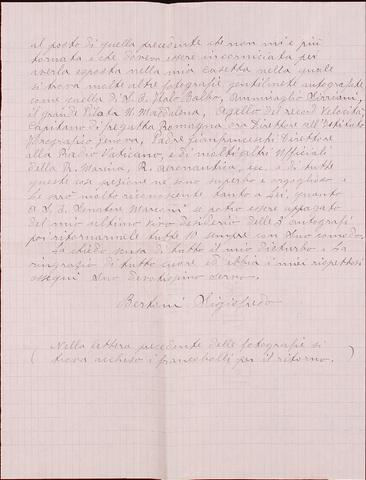 al posto di quella precedente che non mi è più
tornata e che doveva essere incorniciata per
averla esposta nella mia casetta nella quale
si trova molte altre fotografie gentilmente autografate
come quella di S. E. Italo Balbo, Ammiraglio
il grande Pilota M. Maddalena, Agello del record Velocità,
Capitano di fregatta Romagna ora Direttore all'Istituto
Idrografico Genova, Padre Gianfranceschi Direttore
alla Radio Vaticano, e di molti altri Ufficiali
della R. Marina, R. Aeronautica, ecc. e di tutte
queste così preziose ne sono superbo e orgoglioso e
Le sarò molto riconoscente tanto a Lei, quanto
a S. E. Senatore Marconi se potrò essere appagato
del mio ultimo vivo desiderio delle 3 autografie
poi ritornarmele tutte 10 sempre con Suo comodo.
La chiedo scusa di tutto il mio disturbo e La
ringrazio di tutto cuore ed abbia i miei rispettosi
ossequi Suo devotissimo servo.
Berteni Sigisfredo
(Nella lettera precedente delle fotografie si
trova accluso i francobolli per il ritorno.)